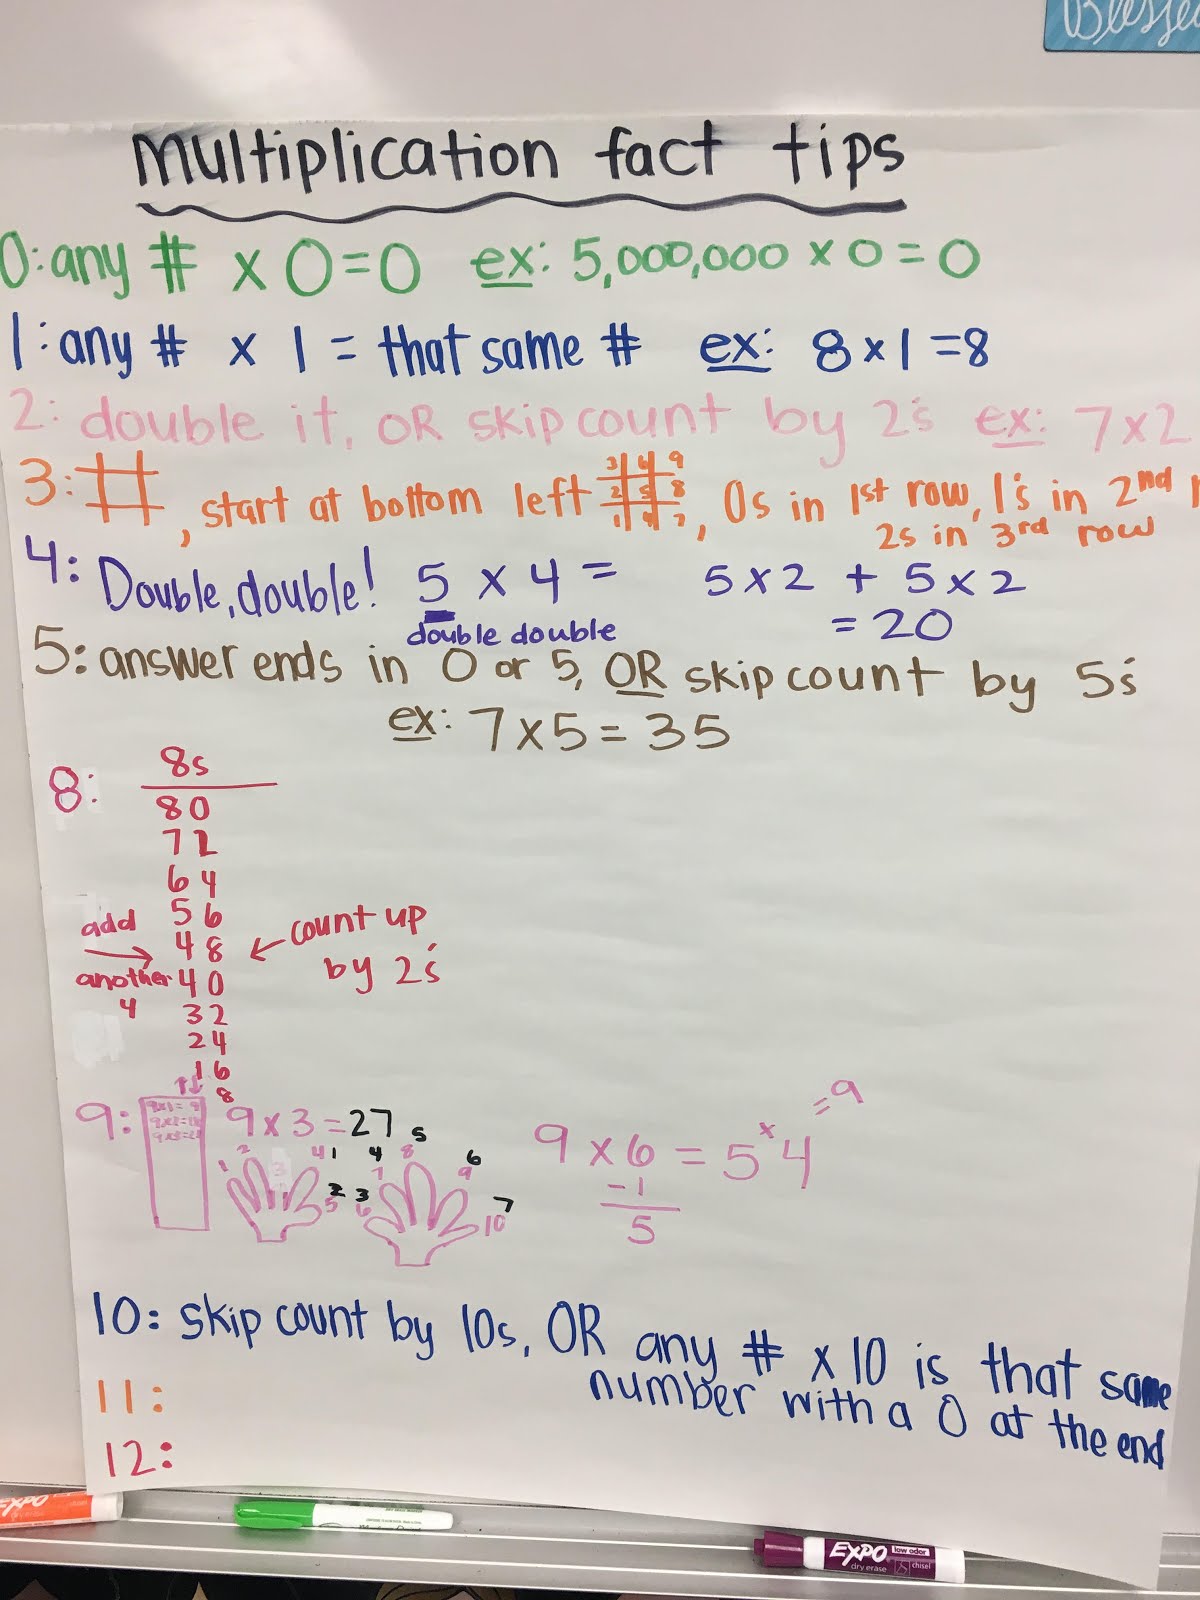 Blesse
multiplication fact tips
0: any # x 0=0 ex: 5,000,000 x 0 = 0
1: any # x 1 = that same # ex: 8x1=8
2: double it, OR skip count by 2's ex: 7x2
3: #, start at bottom left
3 6 9
2 5 8
1 4 7
, 0s in 1st row, 1's in 2nd
2s in 3rd row
4: Double, double! 5 x 4 = 5x2 + 5x2
double double = 20
5: answer ends in 0 or 5, OR skip count by 5's
ex: 7x5=35
8: 8s
80
72
64
56
48
40
32
24
16
8
add
another
4
count up
by 2's
9: 9x3=27
9x1=9
9x2=18
9x3=27
1 2 3 4 5 6 7 8 9 10
1 2 3 4 5 6 7
9 x 6 = 5 + 4 = 9
-1
5
10: skip count by 10s, OR any # x 10 is that same
number with a 0 at the end
11:
12:
EXPO
EXPO
low odor
dry erase
chisel